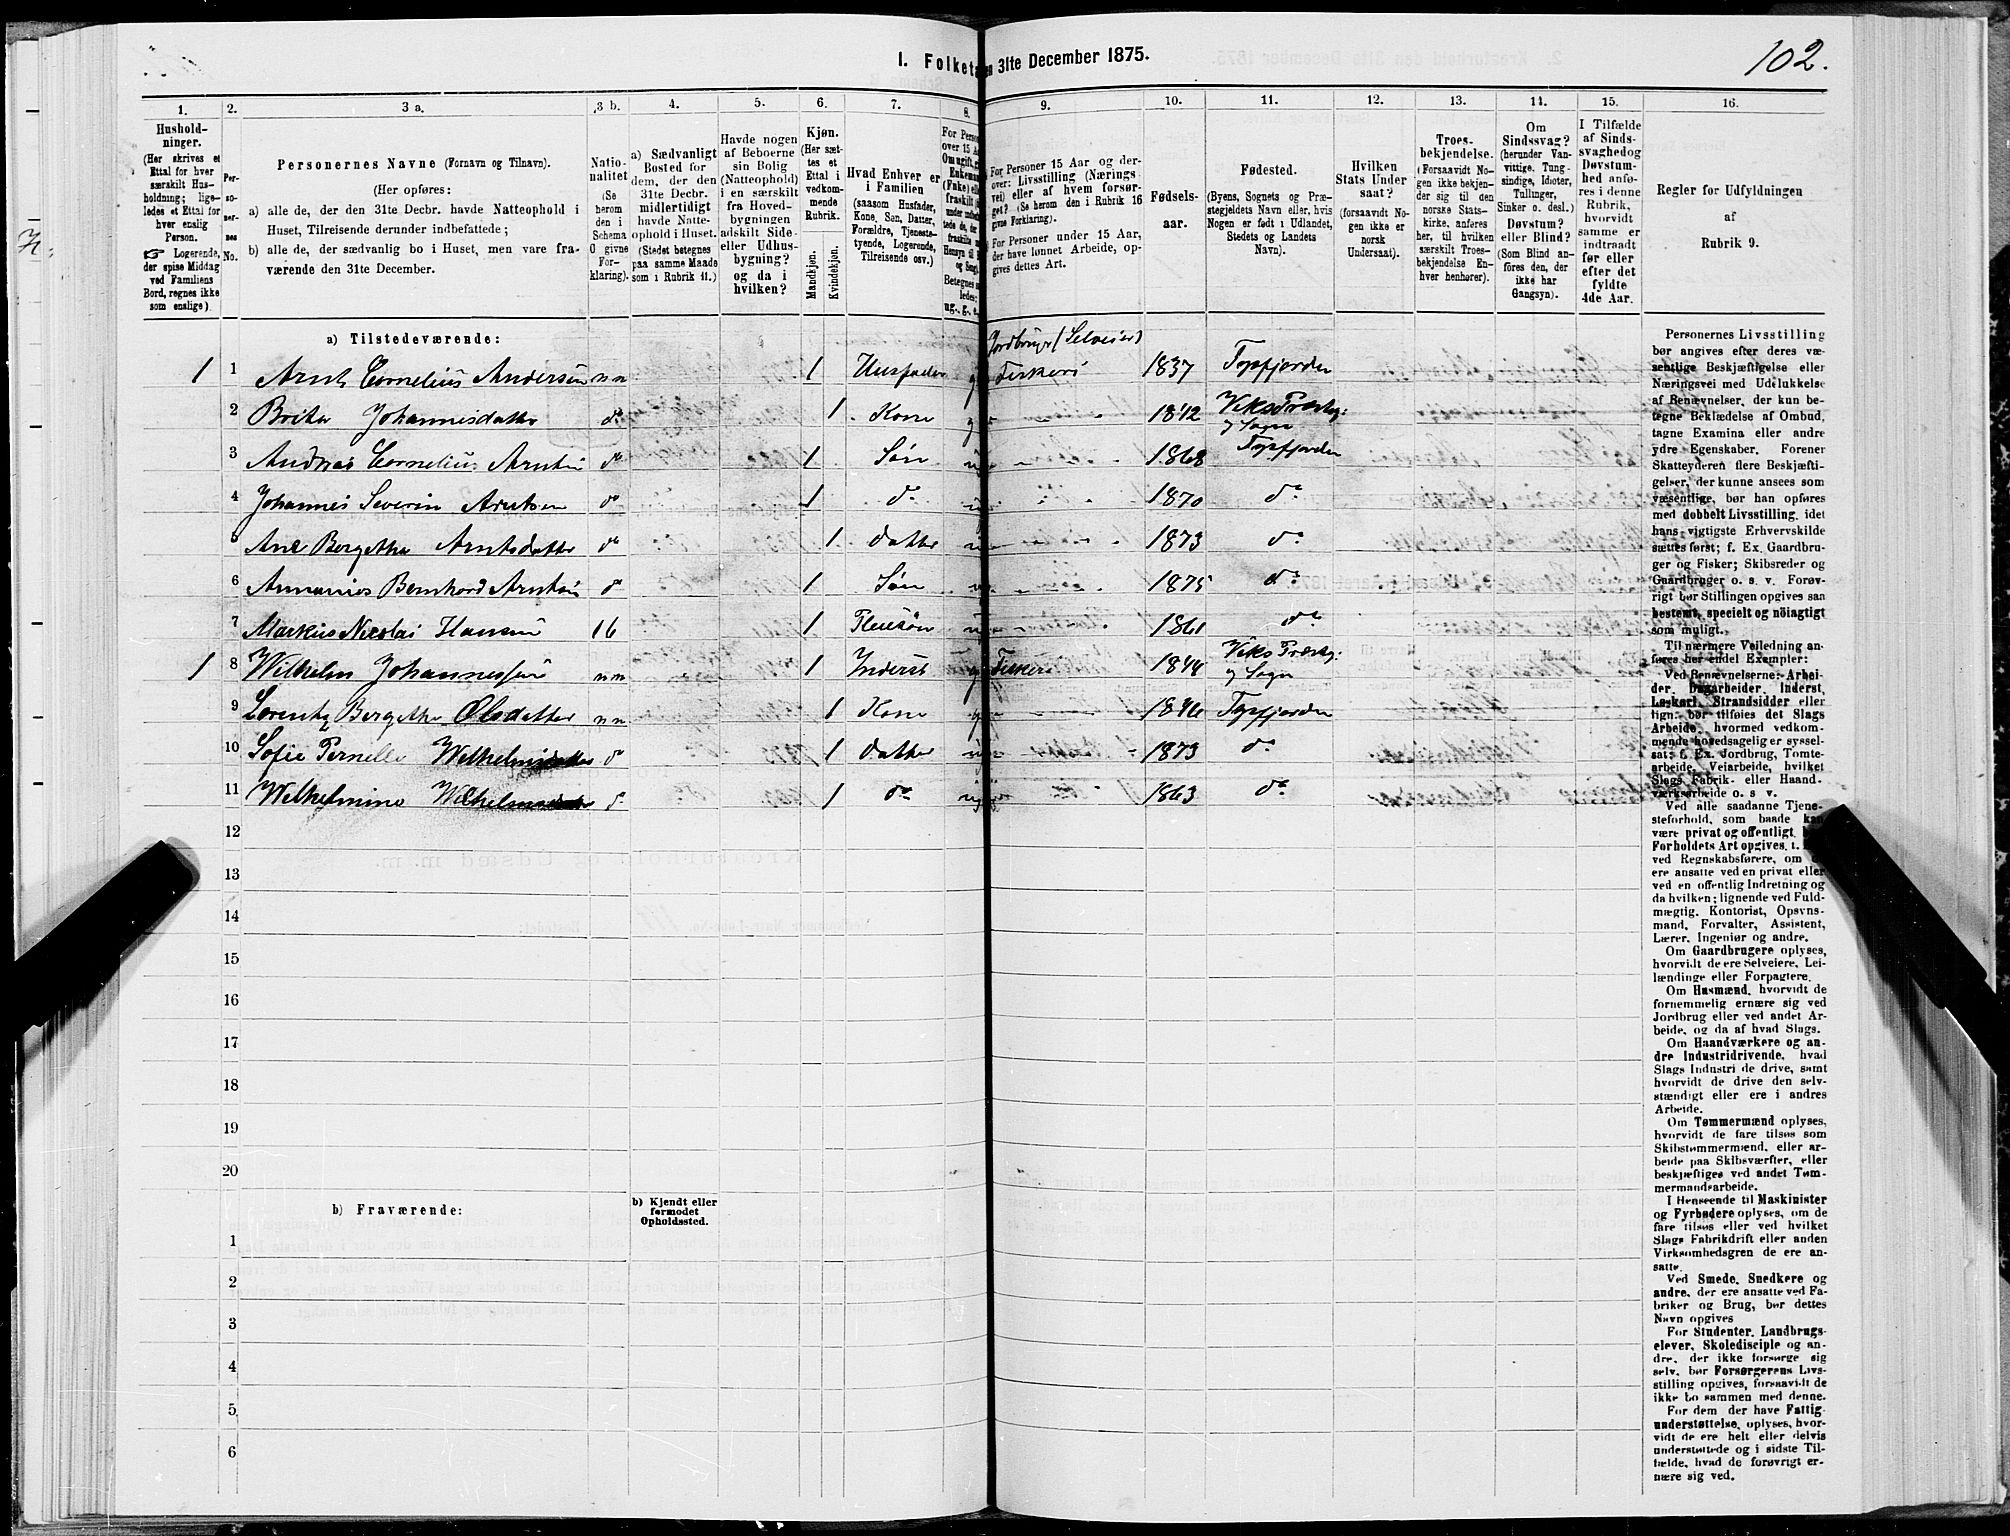 102.
1. Folketæ
en 31te December 1875.
1.
2.
3 a.
3 b.
4.
5.
6.
7.
8.
9.
10.
11.
12.
13.
14.
15.
16.
Hushold-
ninger.
(Her skrives et
Ettal for hver
særskilt Hus-
holdning; lige-
ledes et Ettal for
hver enslig
Person.
☞ Logerende,
der spise Middag
ved Familiens
Bord, regnes ikke
som enslige).
Per-
so-
ner-
nes
No.
Personernes Navne (Fornavn og Tilnavn).
(Her opføres:
a) alle de, der den 31te Decbr. havde Natteophold i
Huset, Tilreisende derunder indbefattede;
b) alle de, der sædvanlig bo i Huset, men vare fra-
værende den 31te December.
Natio-
nalitet
(Se
herom
den i
Schema
O givne
For-
klaring).
a) Sædvanligt
Bosted for
dem, der den
31te Decbr.
midlertidigt
havde Natte-
ophold i Huset.
(Stedet betegnes
paa samme Maade
som i Rubrik 11.)
Havde nogen
af Beboerne
sin Bolig
(Natteophold)
i en særskilt
fra Hoved-
bygningen
adskilt Side-
eller Udhus-
bygning?
og da i
hvilken?
Kjøn.
(Her sæt-
tes et
Ettal i
vedkom-
mende
Rubrik.
Mandkjøn.
Kvindekjøn.
Hvad Enhver er
i Familien
(saasom Husfader,
Kone, Søn, Datter,
Forældre, Tjeneste-
tyende, Logerende,
Tilreisende osv.)
For Person
over 15 Aa
Om ugift, gi
Enkemand
(Enke) elle
fraskilt
ledes:
ug., g., e.
For Personer 15 Aar og der-
over: Livsstilling (Nærings
vei) eller af hvem forsør-
get? (Se herom den i Rubrik 16
givne Forklaring).
For Personer under 15 Aar,
der have lønnet Arbeide, op-
gives dettes Art.
Fødsels-
aar.
Fødested.
(Byens, Sognets og Præ-
stegjeldets Navn eller, hvis
Nogen er født i Udlandet,
Stedets og Landets
Navn).
Hvilken
Stats Under
saat?
(forsaavidt No-
gen ikke er
norsk
Undersaat).
Troes-
bekjendelse.
(Forsaavidt No-
gen ikke bekjen-
der sig til den
norske Stats-
kirke, anføres
her, til hvilken
særskilt Troes-
bekjendelse En-
hver henhører).
Om
Sindssvag?
(herunder Van-
vittige, Tung-
sindige, Idioter,
Tullinger,
Sinker o. desl.)
Døvstum?
eller Blind?
(Som Blind an-
føres den, der
ikke har
Gangsyn).
I Tilfælde
af Sinds-
svaghed og
Døvstum-
hed anfø-
res i denne
Rubrik,
hvorvidt
samme er
indtraadt
før eller
efter det
fyldte
4de Aar.
Regler for Udfyldningen
af
Rubrik 9.
a) Tilstedeværende:
Jordbruger (Selveier)
1 1 Arnt Cornelius Andersen nn 1 Husfader g Fiskeri 1837 Topfjorden
2 Brita Johannesdatter do 1 Kone g 1842 Viks Præstg: & Sogn
3 Andreas Cornelius Arntsen do 1 Søn ug 1868 Topfjorden
4 Johannes Severin Arntsen do 1 do ug 1870 do
5 Ane Bergetha Arntsdatter do 1 datter ug 1873 do
6 Annanias Bernhard Arntsen do 1 Søn ug 1875 do
7 Markus Nicolai Hansen 16 1 Pleiesøn ug 1861 do
1 8 Wilhelm Johannessen nn 1 Inderst g Fiskeri 1844 Viks Præstg: & Sogn
9 Lorentze Bergethe Olsdatter nn 1 Kone g 1846 Topfjorden
10 Sofie Pernelle Wilhelmsdatter do 1 datter ug 1873 do
11 Wilhelmine Wilhelmsdatter do 1 do ug 1863 do
12
13
14
15
16
17
18
19
20
b) Fraværende:
b) Kjendt eller
formodet
Opholdssted.
1
2
3
4
5
6
Personernes Livsstilling
bør angives efter deres væ-
sentlige Beskjæftigelse eller
Næringsvei med Udelukkelse
af Benævnelser, der kun be-
tegne Beklædelse af Ombud,
tagne Examina eller andre
ydre Egenskaber. Forener
Skatteyderen flere Beskjæfti-
gelser, der kunne ansees som
væsentlige, bør han opføres
med dobbelt Livsstilling, idet
hans vigtigste Erhvervskilde
sættes først; f. Ex. Gaardbru-
ger og Fisker; Skibsreder og
Gaardbruger o. s. v. Forøv-
rigt bør Stillingen opgives saa
bestemt, specielt og nöiagtigt
som muligt.
Til nærmere Veiledning an-
føres her endel Exempler:
Ved Benævnelserne: Arbei-
der, Dagarbeider, Inderst,
Løskarl, Strandsidder eller
lign. bør tilføies det Slags
Arbeide, hvormed vedkom-
mende hovedsagelig er syssel-
sat; f. Ex. Jordbrug, Tomte-
arbeide, Veiarbeide, hvilket
Slags Fabrik- eller Haand-
værksarbeide o. s v.
Ved alle saadanne Tjene-
steforhold, som baade kan
være privat og offentligt,
Forholdets Art opgives.
ved Regnskabsførere, om
ere ansatte ved en privat eller
ved en offentlig Indretning og
da hvilken; lignende ved Fuld-
mægtig, Kontorist, Opsyns-
mand, Forvalter, Assistent,
Lærer, Ingeniør og andre.
Om Gaardbrugere oplyses,
hvorvidt de ere Selveiere, Lei-
lændinge eller Forpagtere.
Om Husmænd, hvorvidt de
fornemmelig ernære sig ved
Jordbrug eller ved andet Ar-
beide, og da af hvad Slags.
Om Haandværkere og an-
dre Industridrivende, hvad
Slags Industri de drive, samt
hvorvidt de drive den selv-
stændigt eller ere i andres
Arbeide.
Om Tømmermænd oplyses,
hvorvidt de fare tilsøs som
Skibstømmermænd, eller ar-
beide paa Skibsværfter, eller
beskjæftiges ved andet Tøm-
mermandsarbeide.
I Henseende til Maskinister
og Fyrbødere oplyses, om de
fare tilsøs eller ved hvilket
Slags Fabrikdrift eller anden
Virksomhedsgren de ere an-
satte.
Ved Smede, Snedkere og
andre, der ere ansatte ved Fa-
briker og Brug, bør dettes
Navn opgives
For Studenter, Landbrugs-
elever, Skoledisciple og an-
dre, der ikke forsørge sig
selv, bør Forsørgerens Livs-
stilling opgives, forsaavidt de
ikke bo sammen med denne.
For dem der have Fattig-
understøttelse, oplyses, hvor-
vidt de ere helt eller delvis
understøttede og i sidste Til-
fælde, hvad de forøvrigt er-
nære sig ved.